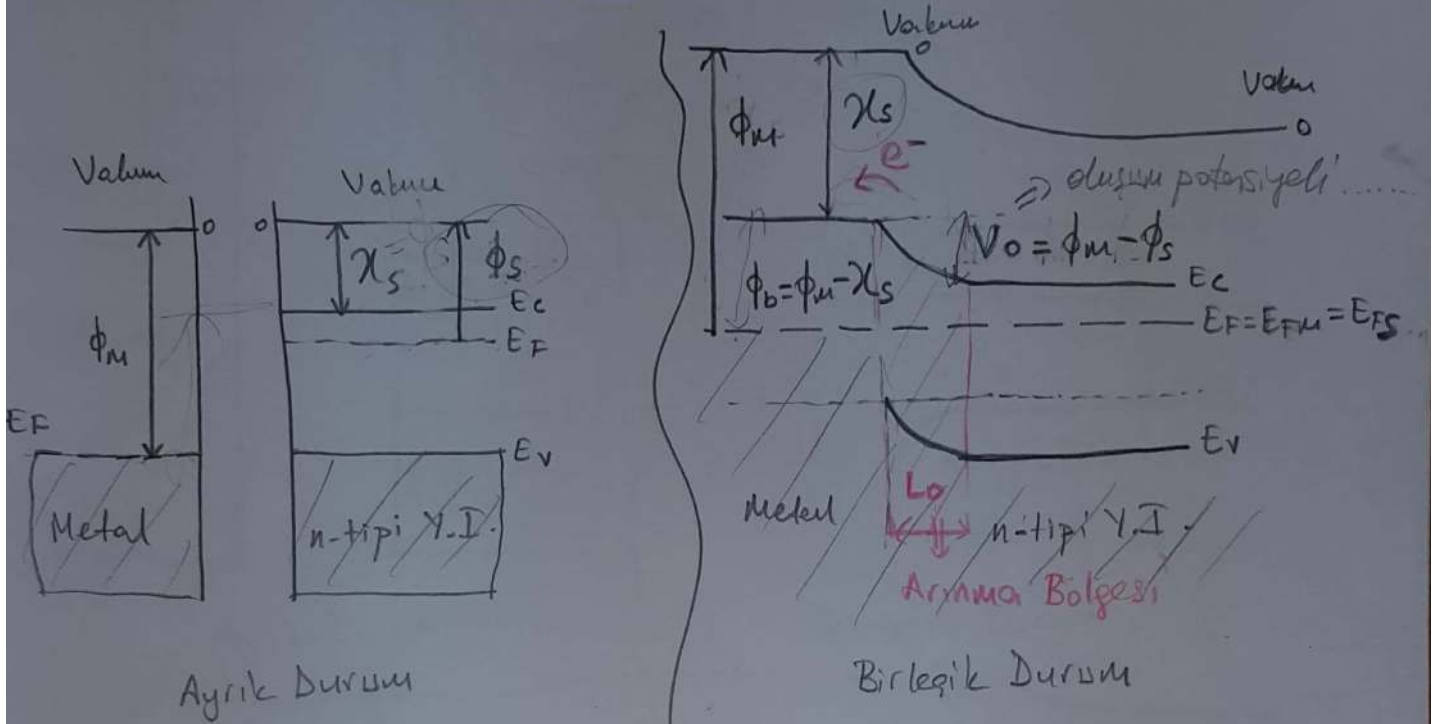 Vakum
Vakum
ϕM
χs
ϕs
Ec
EF
EF
Ev
Metal
n-tipi Y.I.
Ayrık Durum
Vakum
Vakum
ϕM
χs
e-
=> oluşum potansiyeli ......
V0 = ϕM - ϕs
ϕb = ϕM - χs
Ec
EF = EFM = EFS
Ev
Metal
L0
n-tipi Y.I.
Arınma Bölgesi
Birleşik Durum